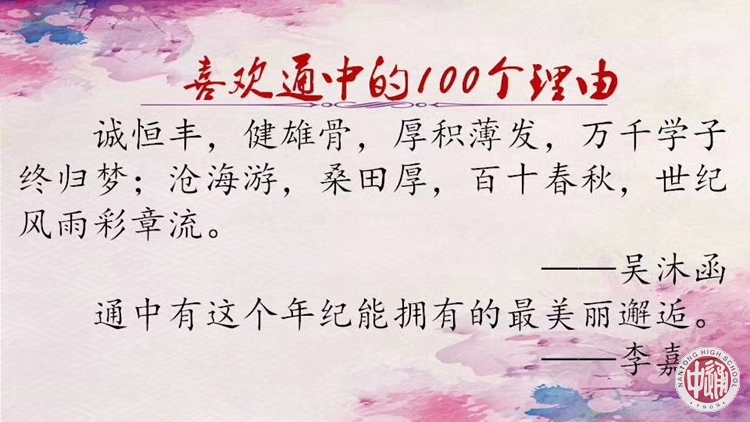 喜欢通中的100个理由
诚恒丰，健雄骨，厚积薄发，万千学子
终归梦；沧海游，桑田厚，百十春秋，世纪
风雨彩章流。
——吴沐函
通中有这个年纪能拥有的最美丽邂逅。
——李嘉
NANTONG HIGH SCHOOL
通中
1909